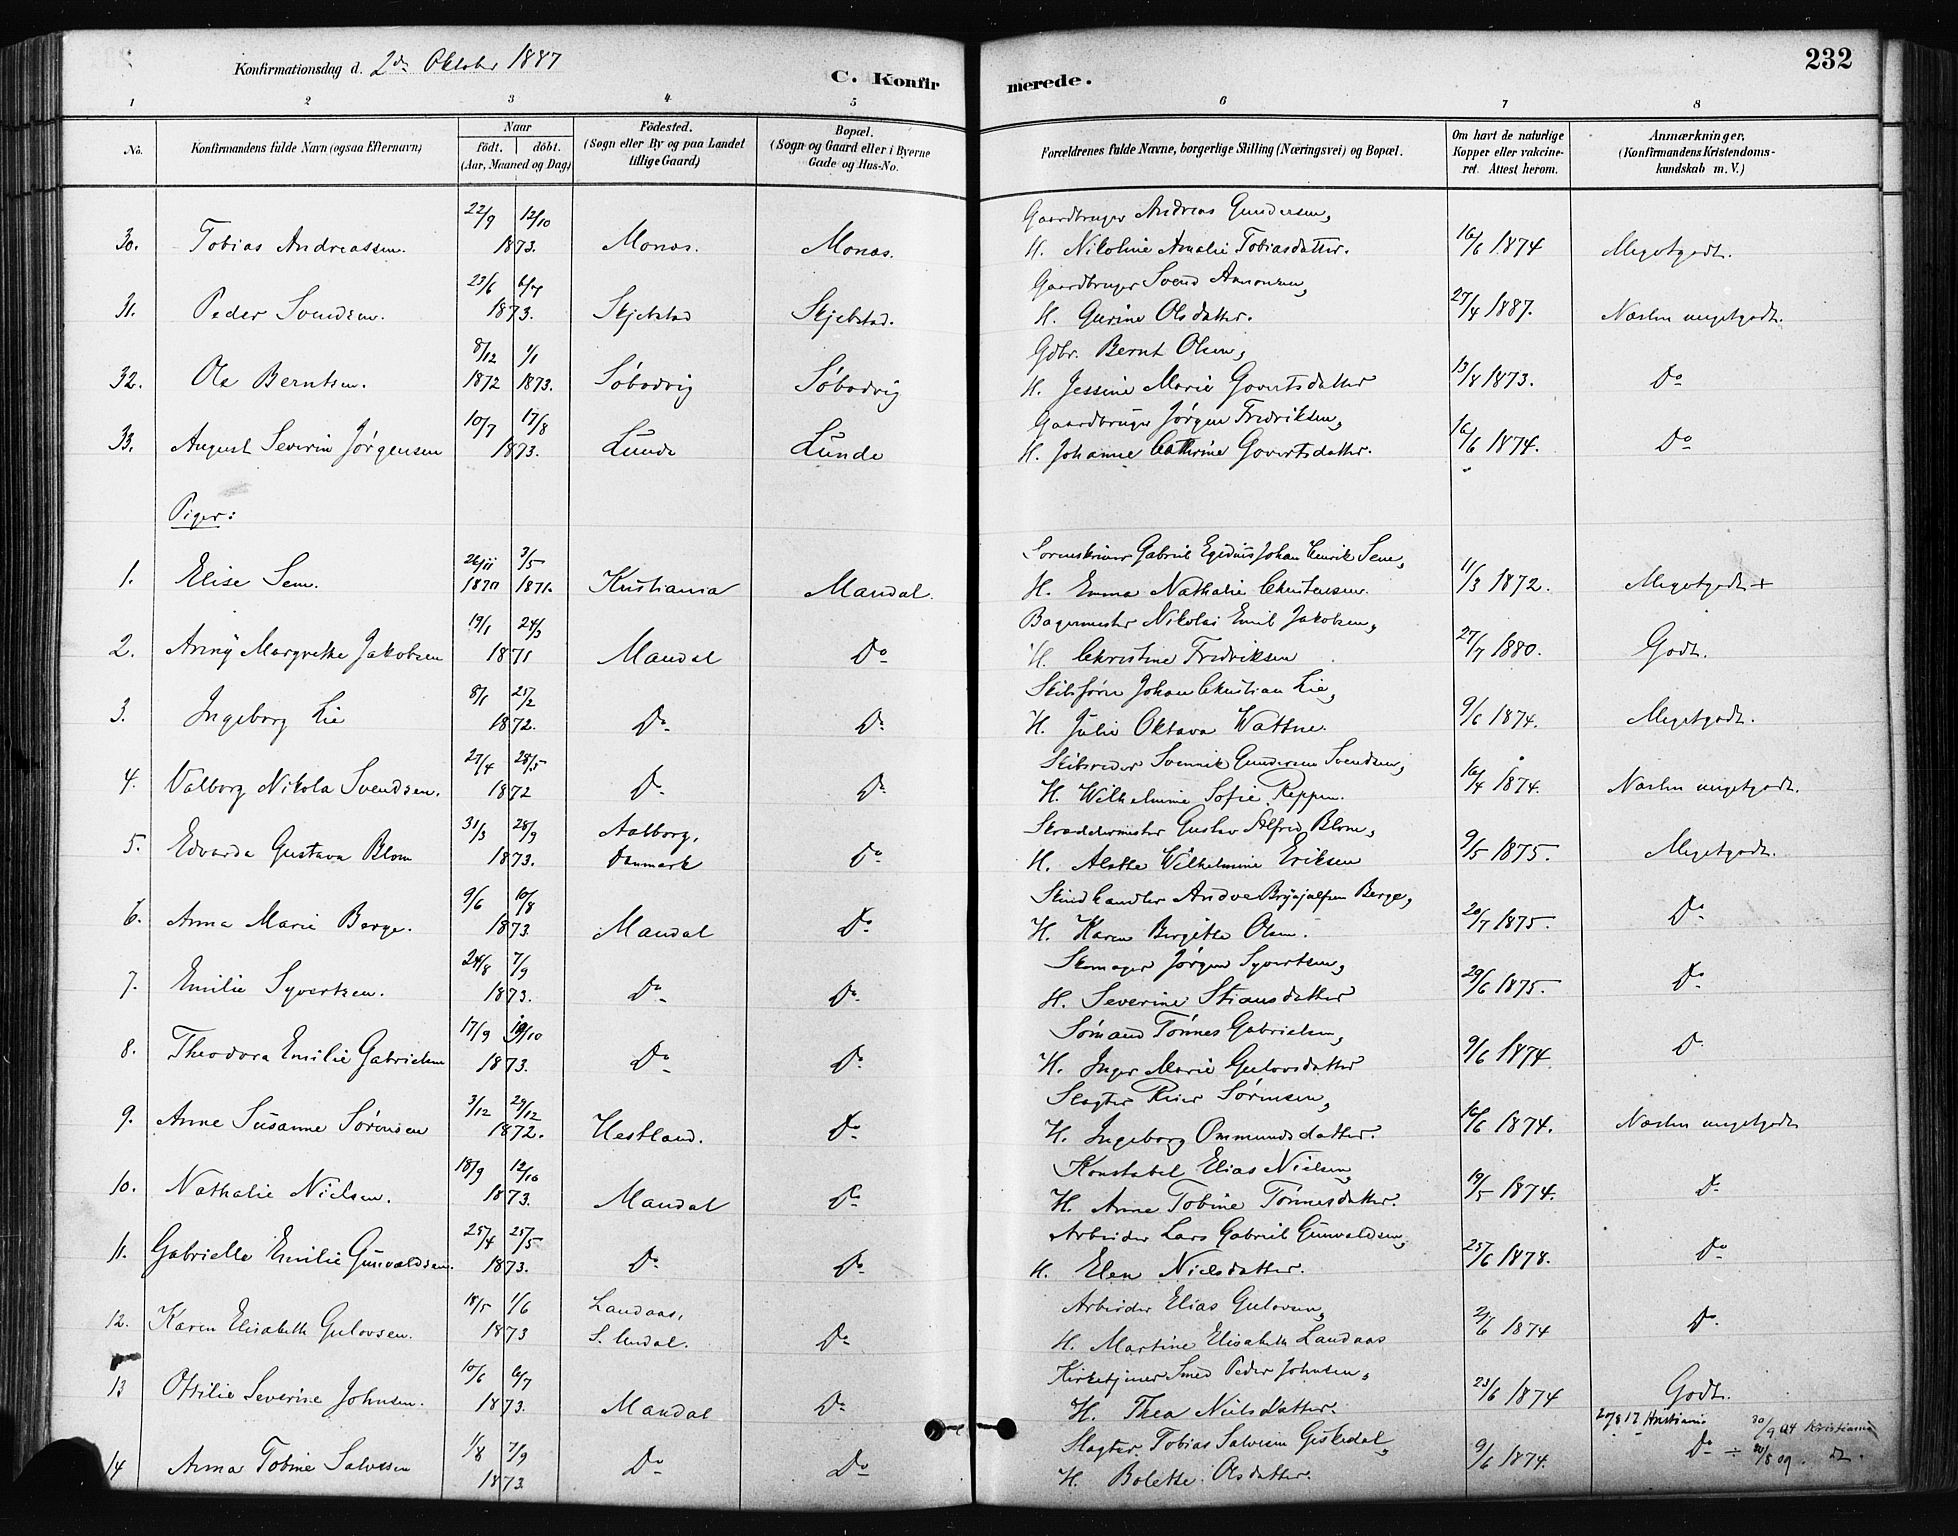 Konfirmationsdag d. 2den Oktober 1887
C. Konfirmerede.
232
1 2 3 4 5 6 7 8
No.
Konfirmandens fulde Navn (ogsaa Efternavn)
Naar
födt. döbt.
(Aar, Maaned og Dag)
Födested.
(Sogn eller By og paa Landet
tillige Gaard)
Bopæl.
(Sogn og Gaard eller i Byerne
Gade og Hus-No.
Forældrenes fulde Navne, borgerlige Stilling (Næringsvei) og Bopæl.
Om havt de naturlige
Kopper eller vakcine-
ret. Attest herom.
Anmærkninger,
(Konfirmandens Kristendoms-
kundskab m. V.)
22/9 12/10 Gaardbruger Andreas Gundersen,
30. Tobias Andreassen. 1873. Monas. Monas. H. Nikoline Amalie Tobiasdatter. 16/6 1874 Megetgodt.
23/6 6/7 Gaardbruger Svend Aanonsen,
31. Peder Svendsen. 1873. Skjebstad Skjebstad. H. Gurine Olsdatter. 27/4 1887. Næsten megetgodt.
8/12 1/1 Gdbr. Bernt Olsen,
32. Ole Berntsen. 1872 1873. Söbodvig Söbodvig H. Jessine Marie Govertsdatter 13/8 1873. Do
10/7 17/8 Gaardbruger Jörgen Fredriksen,
33. August Severin Jörgensen 1873. Lunde Lunde H. Johanne Cathrine Govertsdatter. 16/6 1874. Do
Piger:
26/11 3/5 Sorenskriver Gabriel Egidius Johan Henrik Sem,
1. Elise Sem. 1870 1871. Kristiania Mandal. H. Emma Nathalie Christensen. 11/3 1872. Megetgodt +
19/1 24/3 Bagermester Nikolai Emil Jakobsen,
2. Anny Margrethe Jakobsen 1871 Mandal Do H. Christine Fredriksen 27/7 1880. Godt.
8/1 25/2 Skibsförer Johan Christian Lie,
3. Ingeborg Lie 1872. Do Do H. Julie Oktava Wattne. 9/6 1874. Megetgodt.
27/4 28/5 Skibsreder Svennik Gundersen Svendsen,
4. Valborg Nikola Svendsen. 1872 Do Do H. Wilhelmine Sofie Reppen. 16/4 1874. Næsten megetgodt.
31/3 28/9 Aalborg, Skræddermester Gustav Alfred Blom,
5. Edvarda Gustava Blom 1873. Danmark Do H. Alethe Wilhelmine Eriksen 9/5 1875. Megetgodt.
9/6 10/8 Skindhandler Berge,
6. Anna Marie Berge. 1873. Mandal Do H. Karen Birgitte Olsen. 20/7 1875. Do
24/8 7/9 Skomager Jörgen Syvertsen,
7. Emilie Syvertsen. 1873. Do Do H. Severine Stiansdatter 29/6 1875. Do
17/9 19/10 Sömand Tönnes Gabrielsen,
8. Theodora Emilie Gabrielsen 1873. Do Do H. Inger Marie Gulovsdatter 9/6 1874. Do
3/12 29/12 Slagter Reier Sörensen,
9. Anne Susanne Sörensen 1872. Hestland. Do H. Ingeborg Ommundsdatter. 16/6 1874. Næsten megetgodt
18/9 12/10 Konstabel Elias Nielsen,
10. Nathalie Nielsen. 1873. Mandal Do H. Anne Tobine Tönnesdatter. 19/5 1874. Do
25/4 25/5 Arbeider Lars Gabriel Gunvaldsen,
11. Gabrielle Emilie Gunvaldsen. 1873. Do Do H. Elen Nielsdatter. 25/6 1878. Do
18/5 1/6 Landaas, Arbeider Elias Gulovsen,
12. Karen Elisabeth Gulovsen. 1873 S. Undal. Do H. Martine Elisabeth Landaas 2/6 1874 Do
10/6 6/7 Kirketjener Smed Peder Johnsen,
13 Ottilie Severine Johnsen. 1873. Mandal Do H. Thea Nielsdatter. 23/6 1874 Godt.
20/8 17 Kristiania 30/9 04 Kristiania
1/8 7/9 Slagter Tobias Salvesen Giskedal,
14 Anna Tobine Salvesen 1873. Do Do H. Bolette Olsdatter. 9/6 1874. Do ÷ 20/8 09. Do.